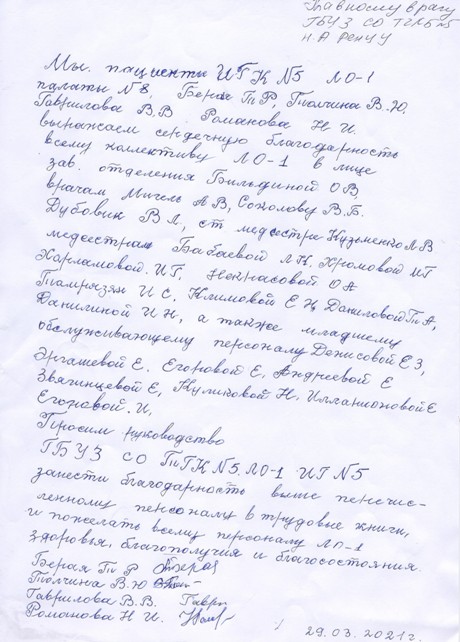 Главному врачу
ГБУЗ СО ТГКБ №5
Н.А Ренцу
Мы. пациенты ИГК №5 ЛО-1
палаты №8, Берая Т Р, Толчина В.Ю.
Гаврилова В.В Романова Н И.
выражаем сердечную благодарность
всему коллективу ЛО-1 в лице
зав. отделения Бильдиной О В,
врачам Мигель А В, Соколову В.Б.
Дубовик В Л, ст медсестре Кузьменко Л В
медсестрам Бабаевой Л К. Хромовой И Г
Харламовой. И Г. Некрасовой О А
И С, Климовой Е Н, Даниловой Т А,
Данилиной И Н, а также младшему
обслуживающему персоналу Денисовой Е З,
Эргашевой Е. Егоровой Е, Андреевой Е
Звягинцевой Е, Куликовой Н, Илларионовой Е
И,
Просим руководство
ГБУЗ СО ТГК №5 ЛО-1 ИГ №5
занести благодарность выше пенсчис-
ленному персоналу в трудовые книги,
и пожелать всему персоналу ЛО-1
здоровья, благополучия и благосостояния.
Берая Т Р
Толчина В.Ю
Гаврилова В.В. Гавр
Романова Н И.
29.03.2021г.